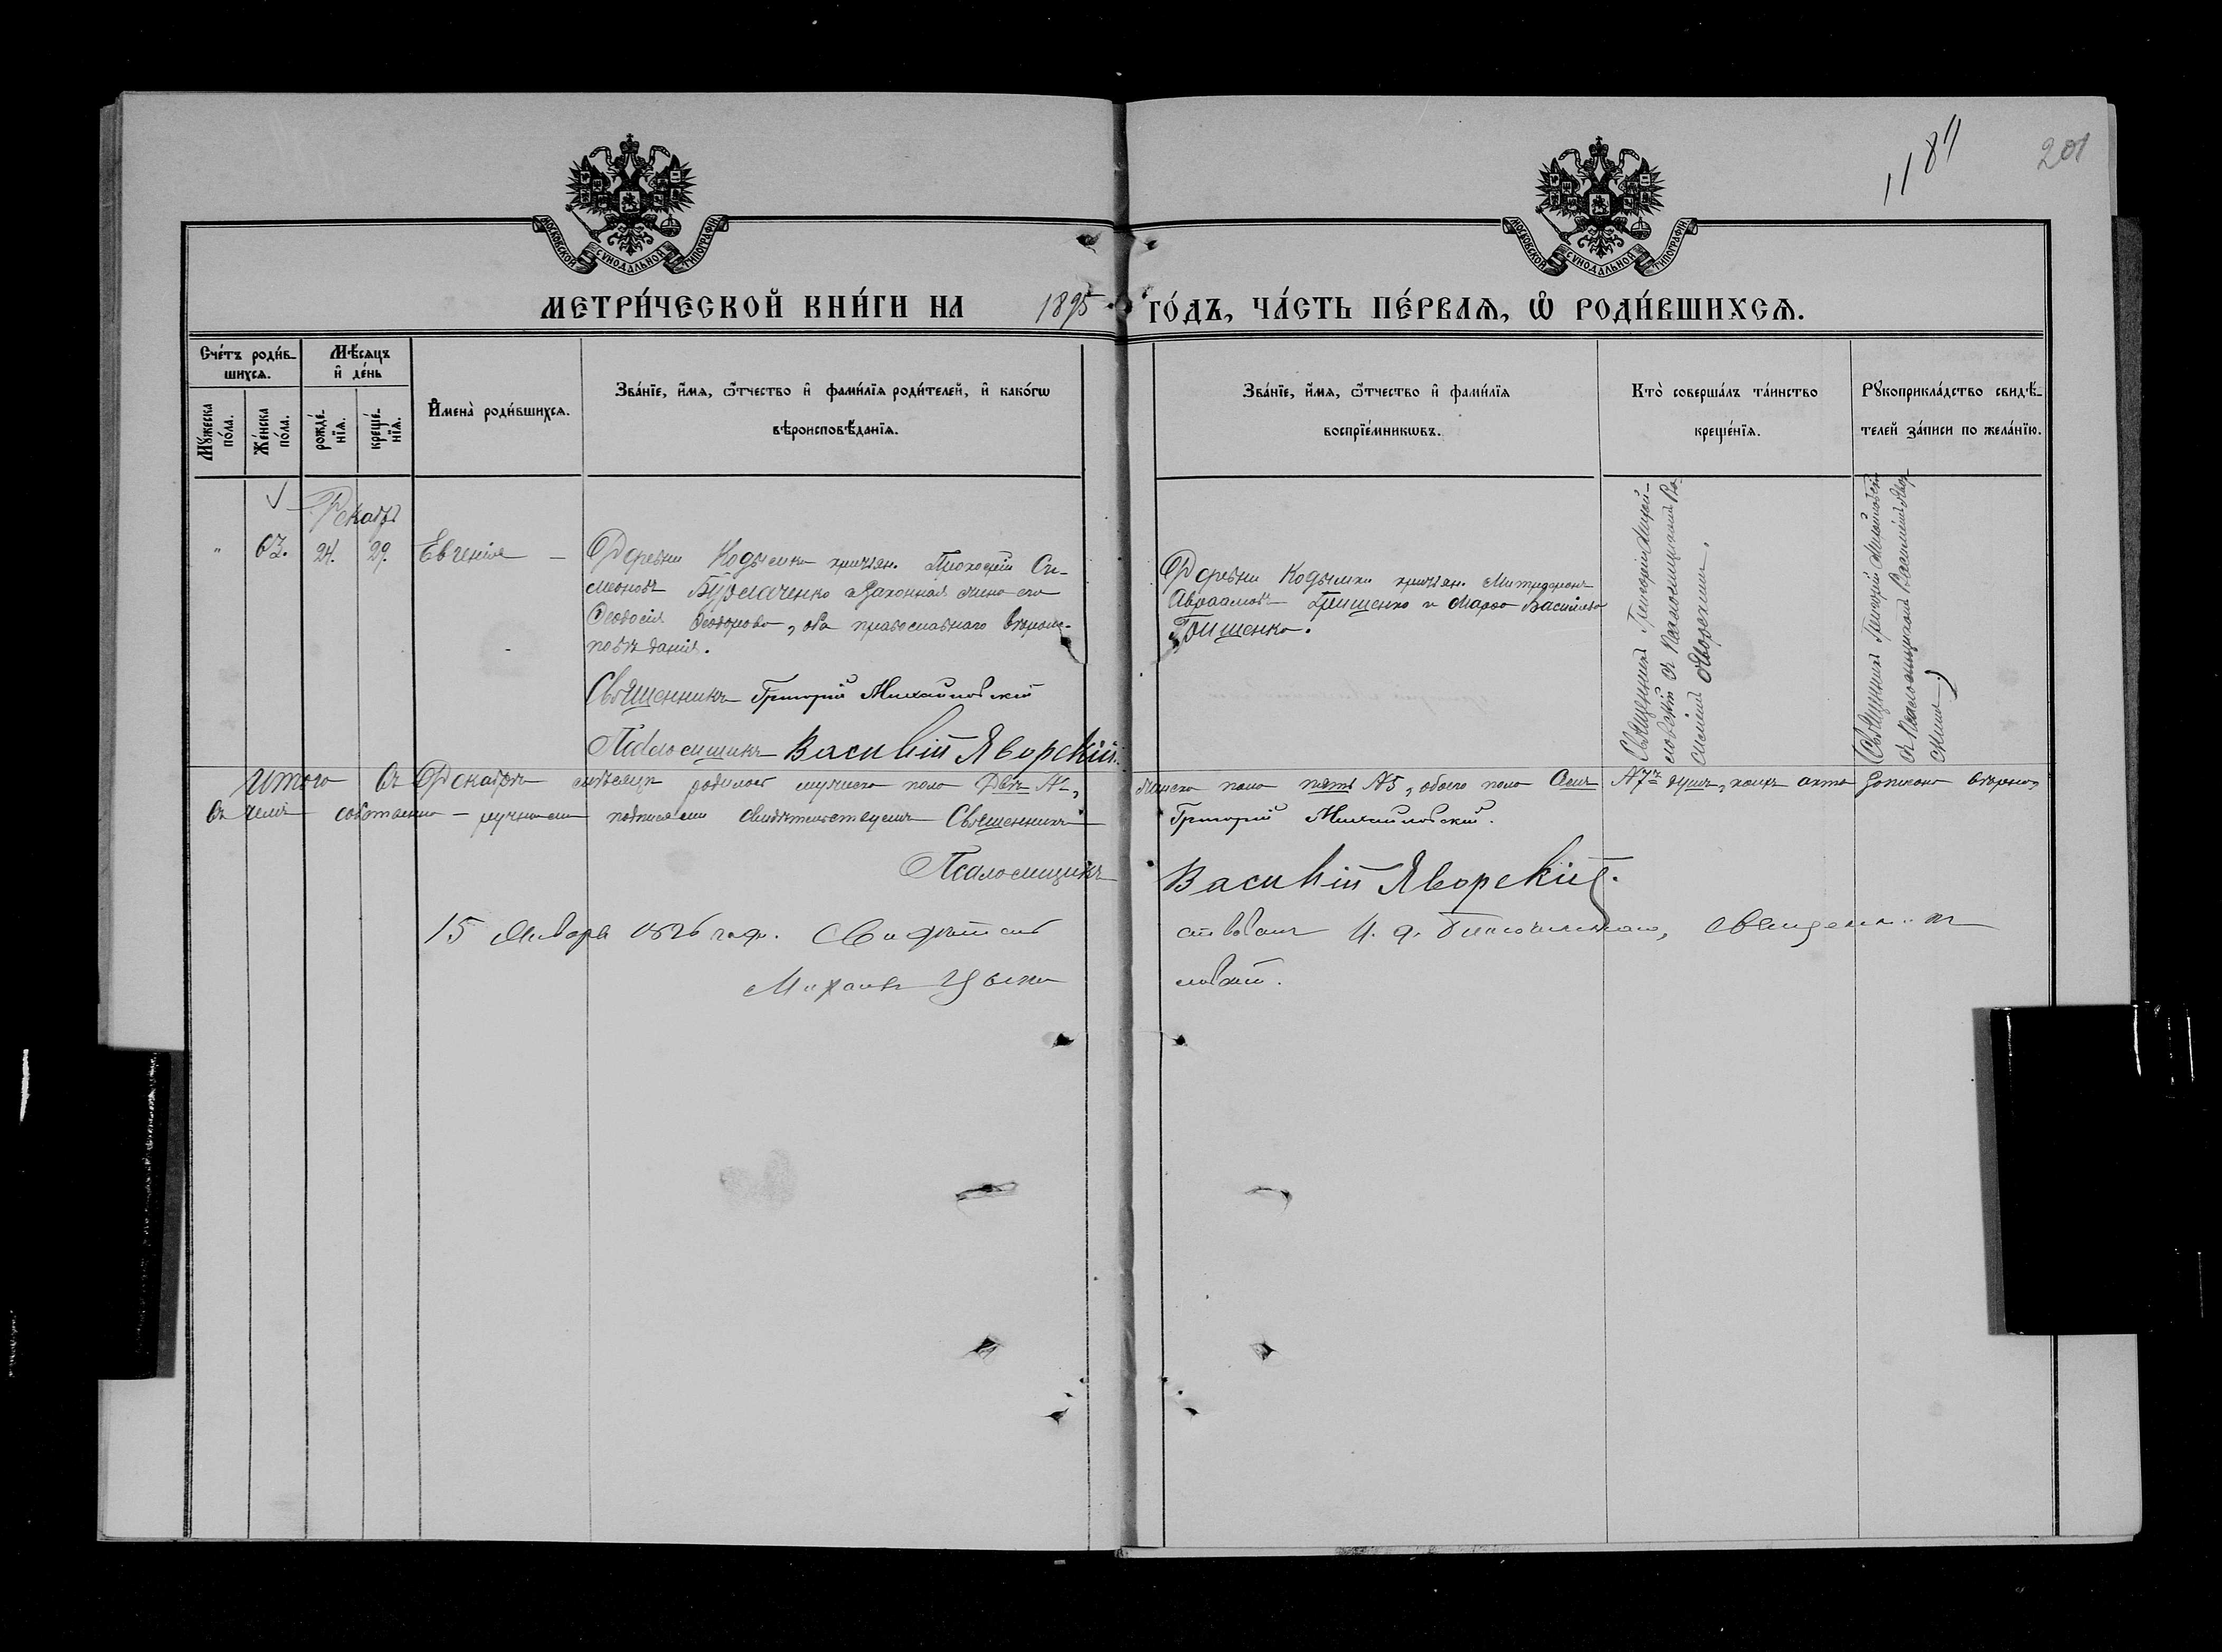 1187
201
МОСКОВСКОЙ СѴНОДАЛЬНОЙ ТИПОГРАФІИ
МОСКОВСКОЙ СѴНОДАЛЬНОЙ ТИПОГРАФІИ
МЕТРИ́ЧЕСКОЙ КНИ́ГИ НА 1895 ГО́ДЪ, ЧА́СТЬ ПЕ́РВАѦ, Ѽ РОДИ́ВШИХСѦ.
Сче́тъ роди́в-
шихсѧ.
Мѣ́сѧцъ
и҆ де́нь
Мꙋ́жеска
по́ла.
Же́нска
по́ла.
рожде́-
нїѧ.
креще́-
нїѧ.
И҆мена̀ роди́вшихсѧ.
Зва́нїе, и҆́мѧ, ѻ҆́тчество и҆ фами́лїѧ роди́телей, и҆ како́гѡ
вѣроисповѣ́данїѧ.
Зва́нїе, и҆́мѧ, ѻ҆́тчество и҆ фами́лїѧ
воспрїе́мникѡвъ.
Кто̀ соверша́лъ та́инство
креще́нїѧ.
Рꙋкоприкла́дство свидѣ́-
телей за́писи по жела́нїю.
Декабр
" 63. 24. 29. Евгенія
Деревни Кодымки крестьян. Си-
меоновъ Бурлаченко и законная жена его
Ѳеодосія Ѳеодорова, оба православнаго вѣроис-
повѣданія.
Священникъ Григорій Михайловскій
Псаломщикъ Василій Яворскій.
Деревни Кодымки крестьян. Митрофанъ
Авраамовъ Грищенко и Марѳа Васильева
Грищенко.
Священникъ Григорій Михай-
ловскій съ Псаломщикомъ Ва-
силіемъ Яворскимъ.
Священникъ Григорій Михайловскій
съ Псаломщикомъ Василіемъ Явор-
скимъ
Итого въ Декабрѣ мѣсяцѣ родилось мужеска пола Двѣ №2, женска пола пять №5, обоего пола Семь №7 душъ, коихъ акты записаны вѣрно,
въ чемъ собственно-ручными подписями свидѣтельствуемъ Священникъ Григорій Михайловскій.
Псаломщикъ Василій Яворскій.
15 Января 1896 года. Свидѣтель
ствовалъ И. д. Благочиннаго, Священникъ
Михаилъ